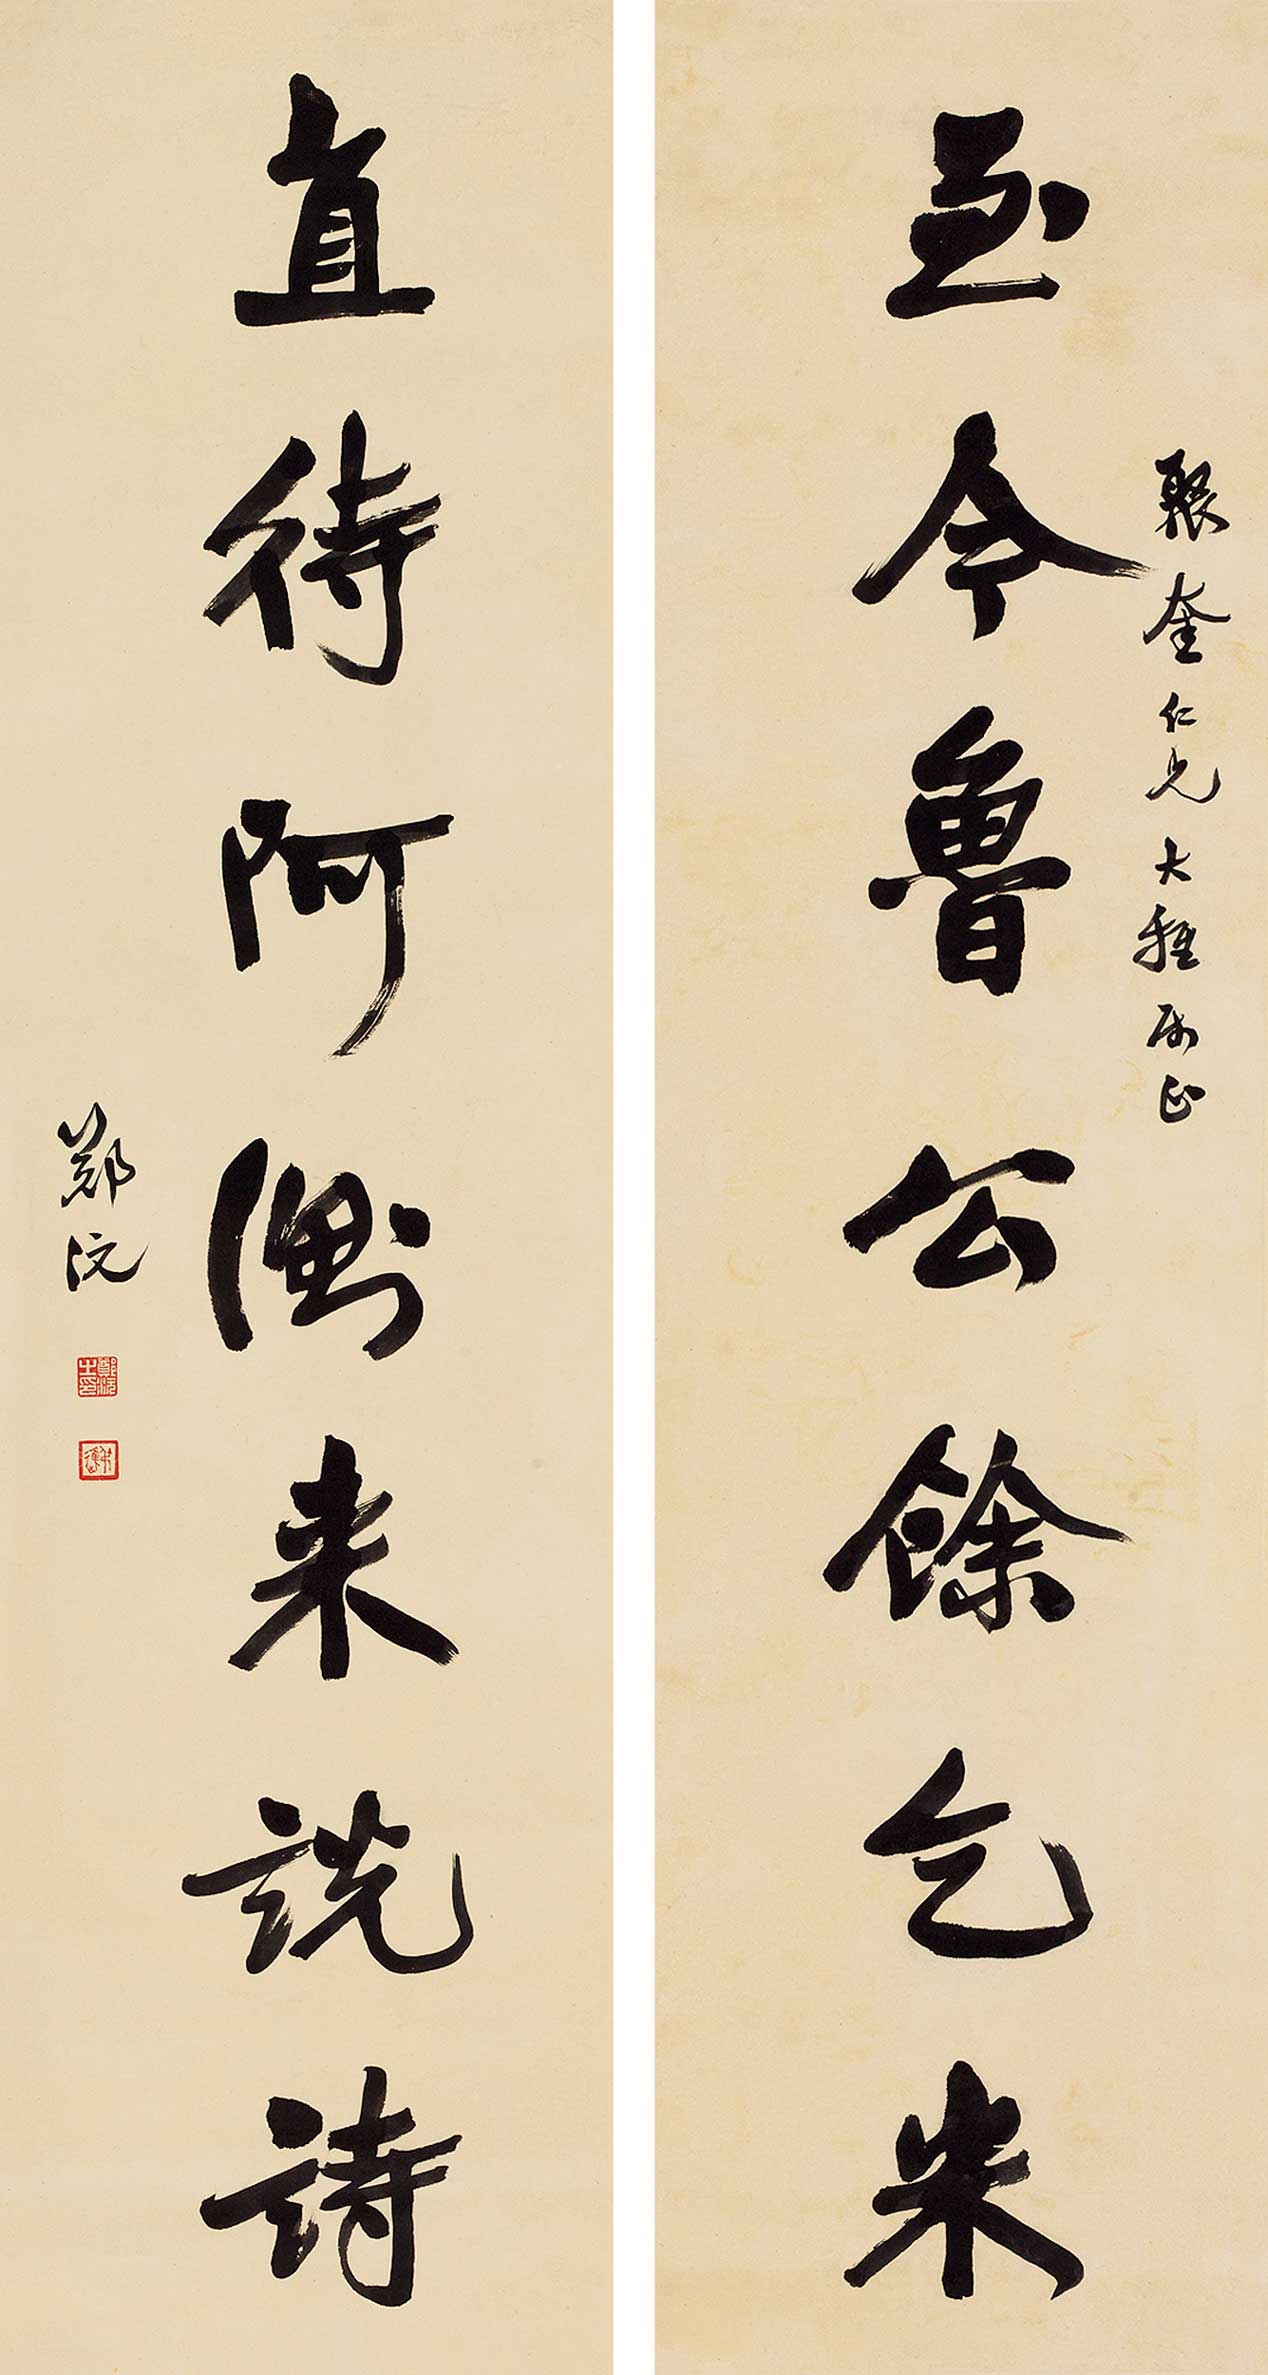 至今魯公餘乞米
聚奎仁兄大雅屬正
直待阿衡来說詩
鄭沅
鄭沅之印